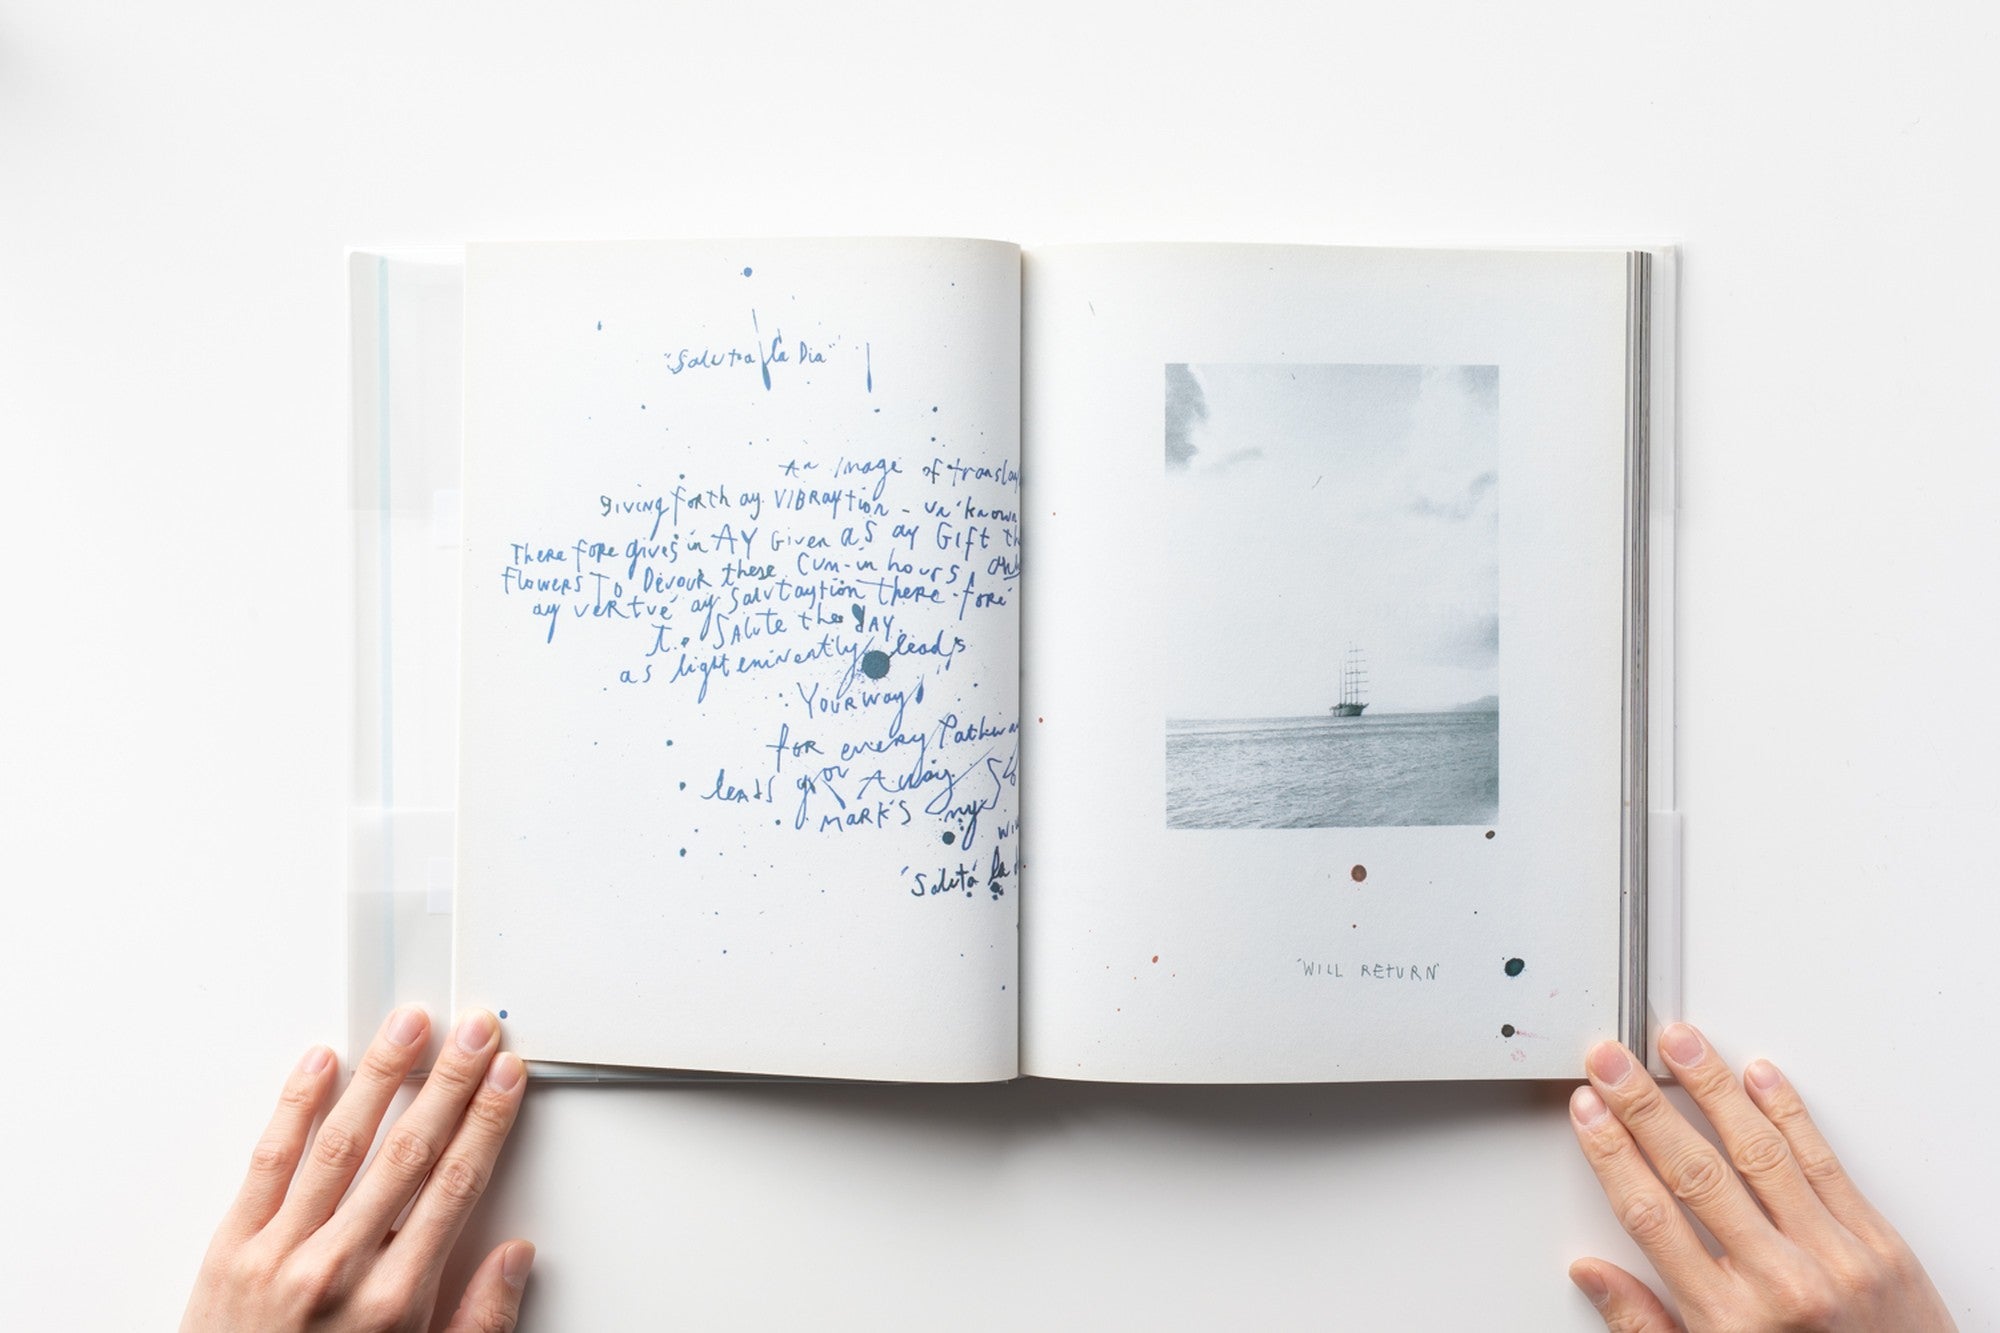 "Saluta la Dia"
An image of
giving forth ay VIBRAYtion - un'known
Therefore gives in AY Given as ay Gift
Flowers To Devour these Cum-in hours
ay vertue ay Salutaytion there-fore
to Salute the DAY.
as light eminently leads
Your way
for every
leads you Away
MARKS my
'Saluta la
'WILL RETURN'